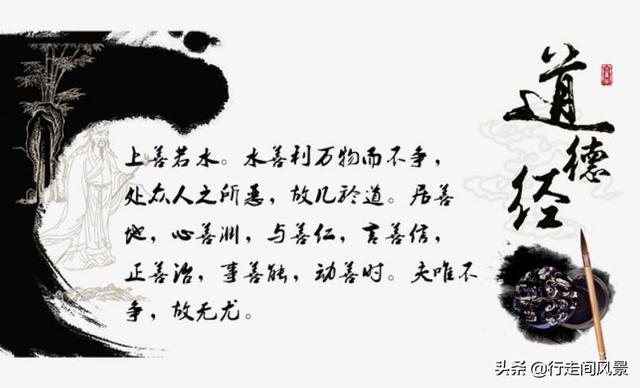 道德经
上善若水。水善利万物而不争，
处众人之所恶，故几於道。居善
地，心善渊，与善仁，言善信，
正善治，事善能，动善时。夫唯不
争，故无尤。
头条 @行走间风景